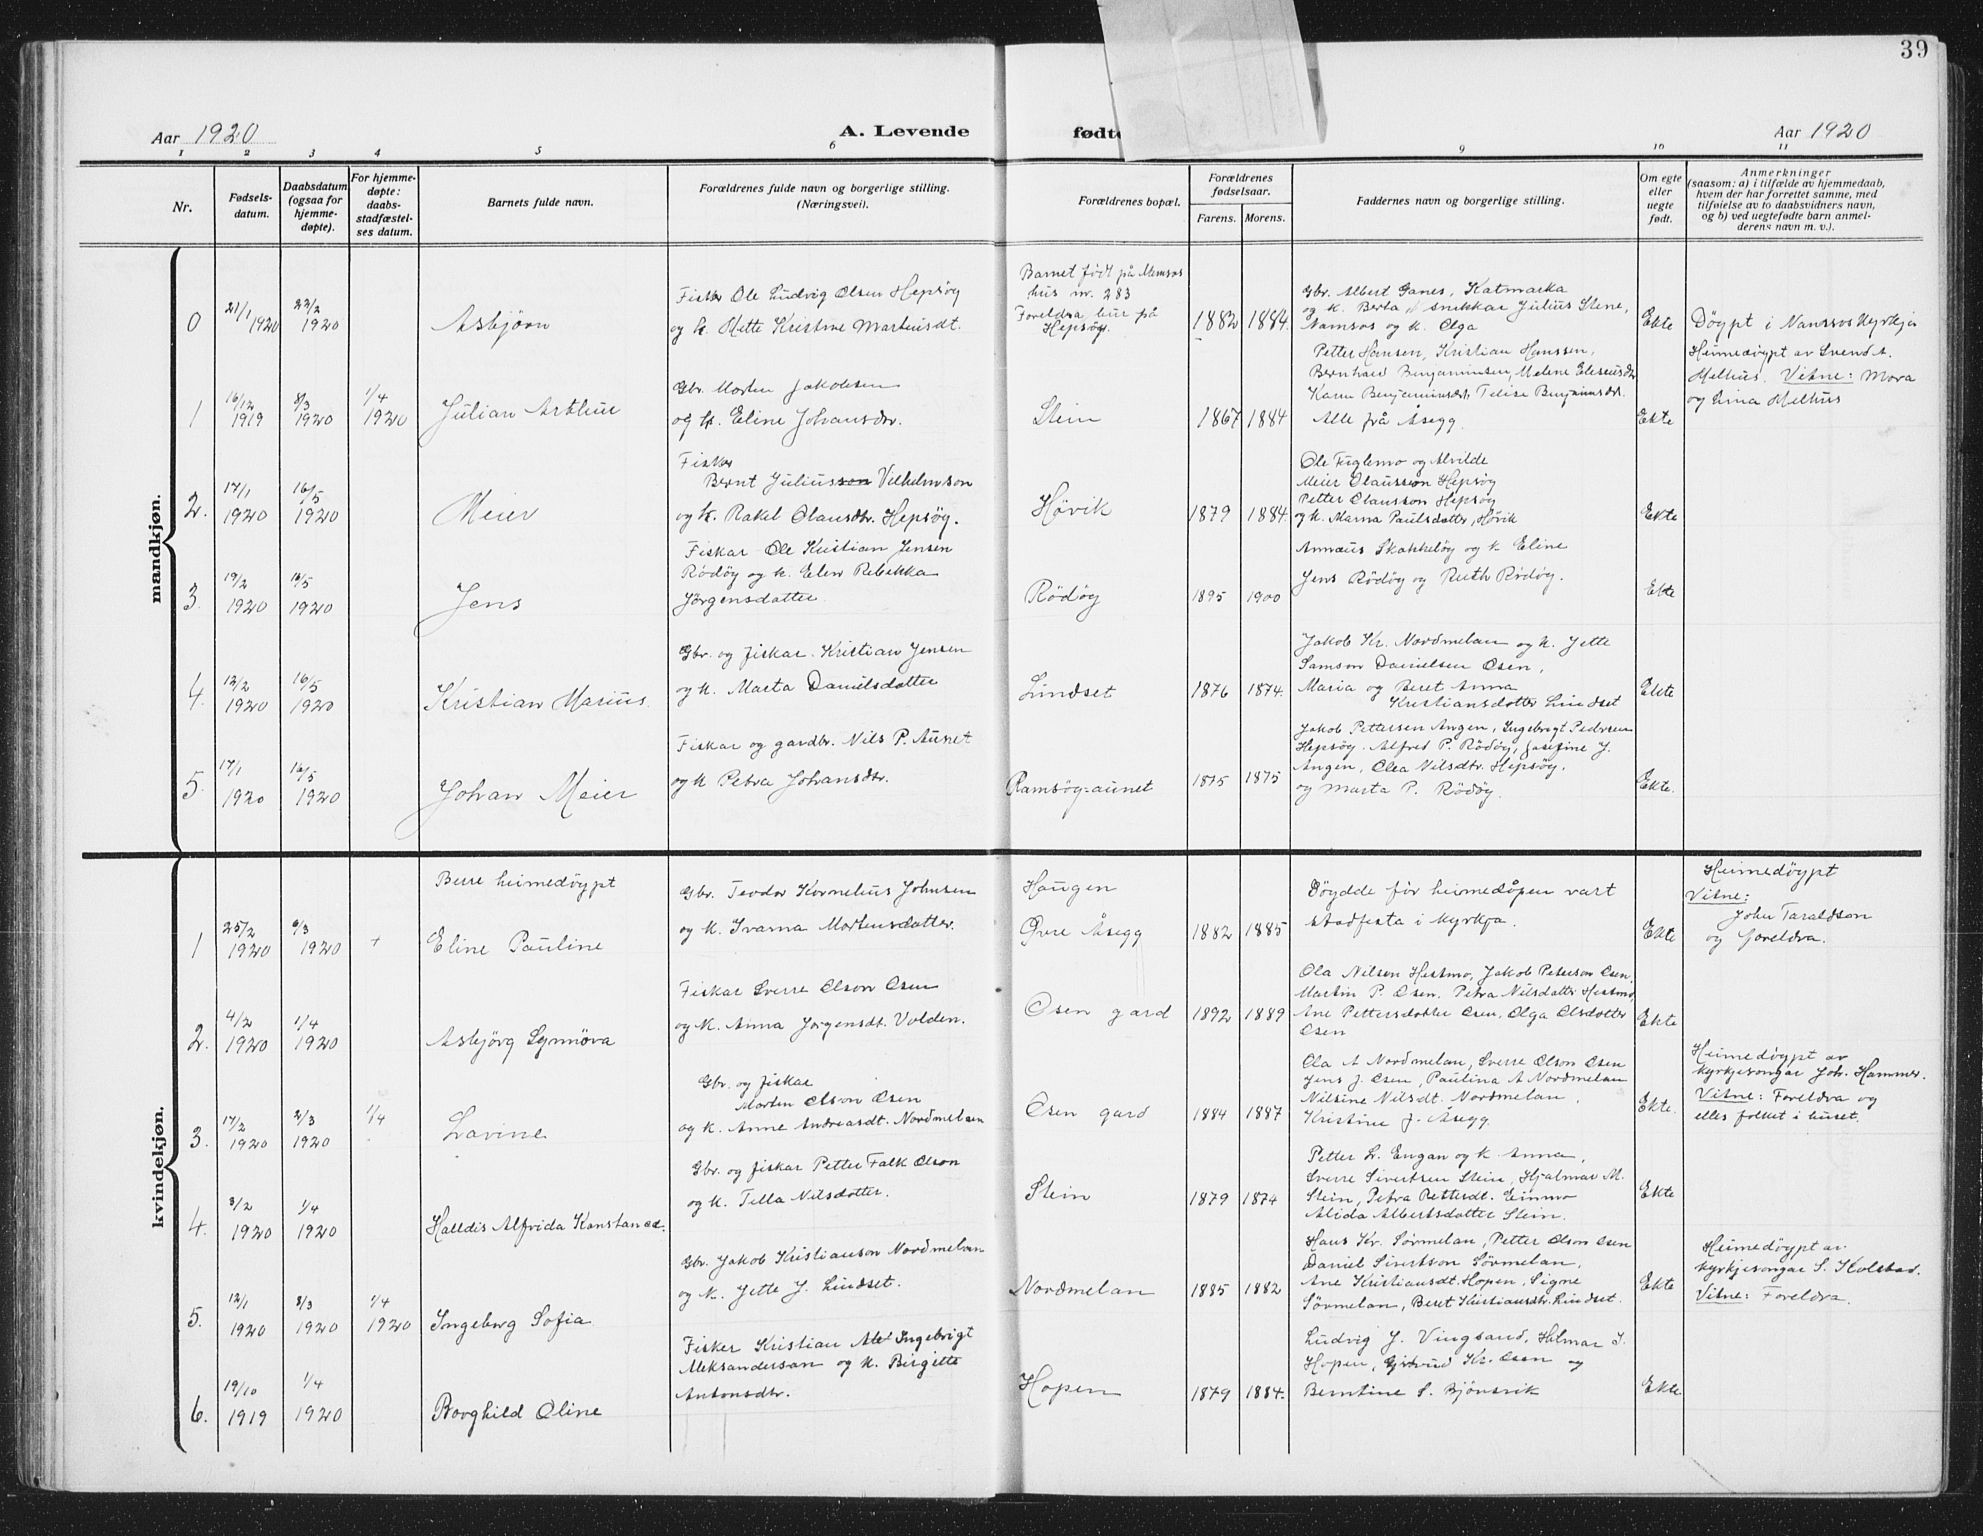 39
Aar 1920
A. Levende
fødte
Aar 1920
1 2 3 4 5 6 9 10 11
Nr.
Fødsels-
datum.
Daabsdatum
(ogsaa for
hjemme-
døpte).
For hjemme-
døpte:
daabs-
stadfæstel-
ses datum.
Barnets fulde navn.
Forældrenes fulde navn og borgerlige stilling.
(Næringsvei).
Forældrenes bopæl.
Forældrenes
fødselsaar.
Farens. Morens.
Faddernes navn og borgerlige stilling.
Om egte
eller
uegte
født.
Anmerkninger
(saasom: a) i tilfælde av hjemmedaab,
hvem der har forrettet samme, med
tilføielse av to daabsvidners navn,
og b) ved uegtefødte barn anmel-
derens navn m. v.).
mandkjøn.
0
21/1 1920
22/2
1920
Asbjörn
Fisker Ole Ludvig Olsen Hepsöy
og k. Mette Kristine Marteusdt.
Barnet födt på Namsos
hus nr. 283
Foreldra bur på
Hepsöy.
1882 1884.
Gbr. Albert Ganes, Katmarka
og k. Berta, snekkar Julius Stene,
Namsos og k. Olga
Ekte
Döypt i Namsos Kyrkje
1
16/12
1919
8/3
1920
1/4
1920
Julian Arthur
Gbr. Morten Jakobsen
og k. Eline Johansdtr.
Stein
1867 1884
Petter Hansen, Kristian Hanssen,
Bernhard Benjaminsen, Melene Eleseusdtr
Karen Benjaminsdt, Telise Benjaminsdt.
Alle frå Åsegg.
Ekte
Heimedöypt av Svend A.
Melhus. Vitne: Mora
og Lina Melhus
2.
17/1
1920
16/5
1920
Meier
Fisker
Bernt Juliusson Vilhelmson
og k. Rakel Olausdtr. Hepsöy.
Hövik
1879 1884.
Ole Fuglemo og Alvilde
Meier Olausson Hepsöy
Petter Olausson Hepsöy
og k. Marna Paulsdatter, Hövik
Ekte
3.
19/2
1920
16/5
1920
Jens
Fiskar Ole Kristian Jensen
Rödöy og k. Elen Rebekka
Jörgensdatter.
Rödöy
1895 1900
Annæus Skakkelöy og k Eline
Jens Rödöy og Ruth Rödöy.
Ekte
4.
12/2
1920
16/5
1920
Kristian Marius.
Gbr. og fiskar. Kristian Jensen
og k. Marta Danielsdatter
Lindset
1876 1874.
Jakob Kr. Nordmelan og k. Jette
Samson Danielsen Osen,
Maria og Beret Anna
Kristiansdotter Lindset
Ekte
5.
17/1
1920
16/5
1920
Johan Meier
Fiskar og gardbr. Nils P. Aunet
og k Petra Johansdtr.
Ramsöy-aunet
1875 1875
Jakob Pettersen Angen, Ingebrigt Pedersen
Hepsöy. Alfred P. Rödöy, Josefine J.
Angen, Olea Nilsdtr. Hepsöy.
og Marta P. Rödöy.
Ekte.
kvindekjøn.
1
25/2
1920
9/3
1920
+
Berre heimedöypt
Eline Pauline
Gbr. Teodor Kornelius Johnsen
og k. Ivarna Mortensdatter.
Haugen
Övre Åsegg
1882 1885
Döydde för heimedåpen vart
stadfesta i kyrkja.
Ekte
Heimedöypt
Vitne:
John Taraldson
og foreldra.
2.
4/2
1920
1/4
1920
Asbjörg Synnöva
Fiskar Sverre Olson Osen
og k. Anna Jörgensdt. Volden.
Osen gard
1892 1889
Ola Nilsen Hestmo, Jakob Peterson Osen,
Martin P. Osen. Petra Nilsdatter Hestmo,
Ane Pettersdotter Osen, Olga Olsdotter
Osen
Ekte
3.
17/2
1920
2/3
1920
1/4
Lavine
Gbr. og fiskar
Morten Olson Osen
og k. Anne Andreasdt. Nordmelan
Osen gard
1884 1887
Ola A Nordmelan, Sverre Olson Osen
Jens J. Osen, Paulina A Nordmelan
Nilsine Nilsdt. Nordmelan,
Kristine J. Åsegg.
Ekte.
Heimedöypt av
kyrkjesongar Joh. Hammer.
Vitne: Foreldra og
elles folket i huset.
4.
3/2
1920
1/4
1920
Halldis Alfrida Konstance.
Gbr. og fiskar Petter Falk Olson
og k. Tella Nilsdotter.
Stein
1879 1874
Petter L. Engan og k. Anna,
Sverre Sivertsen Stein, Hjalmar M.
Stein, Petra Pettersdt. Einmo
Alida Albertsdotter Stein.
Ekte
5.
12/1
1920
8/3
1920
1/4
1920
Ingeborg Sofia
Gbr. Jakob Kristianson Nordmelan
og K. Jette J. Lindset.
Nordmelan
1885 1882
Hans Kr. Sörmelan, Petter Olson Osen
Daniel Sivertson Sörmelan,
Ane Kristiansdt. Hopen, Signe
Sörmelan, Beret Kristiansdtr. Lindset.
Ekte
Heimedöypt av
kyrkjesongar S. Kolstad.
Vitne: Foreldra.
6.
19/10
1919
1/4
1920
Borghild Oline
Fisker Kristian Ingebrigt
Aleksanderson og k. Birgitte
Antonsdtr.
Hopen
1879 1884.
Ludvig J. Vingsand, Hilmar I.
Hopen, Gjertrud Kr. Osen og
Berntine S. Bjönsvik
Ekte